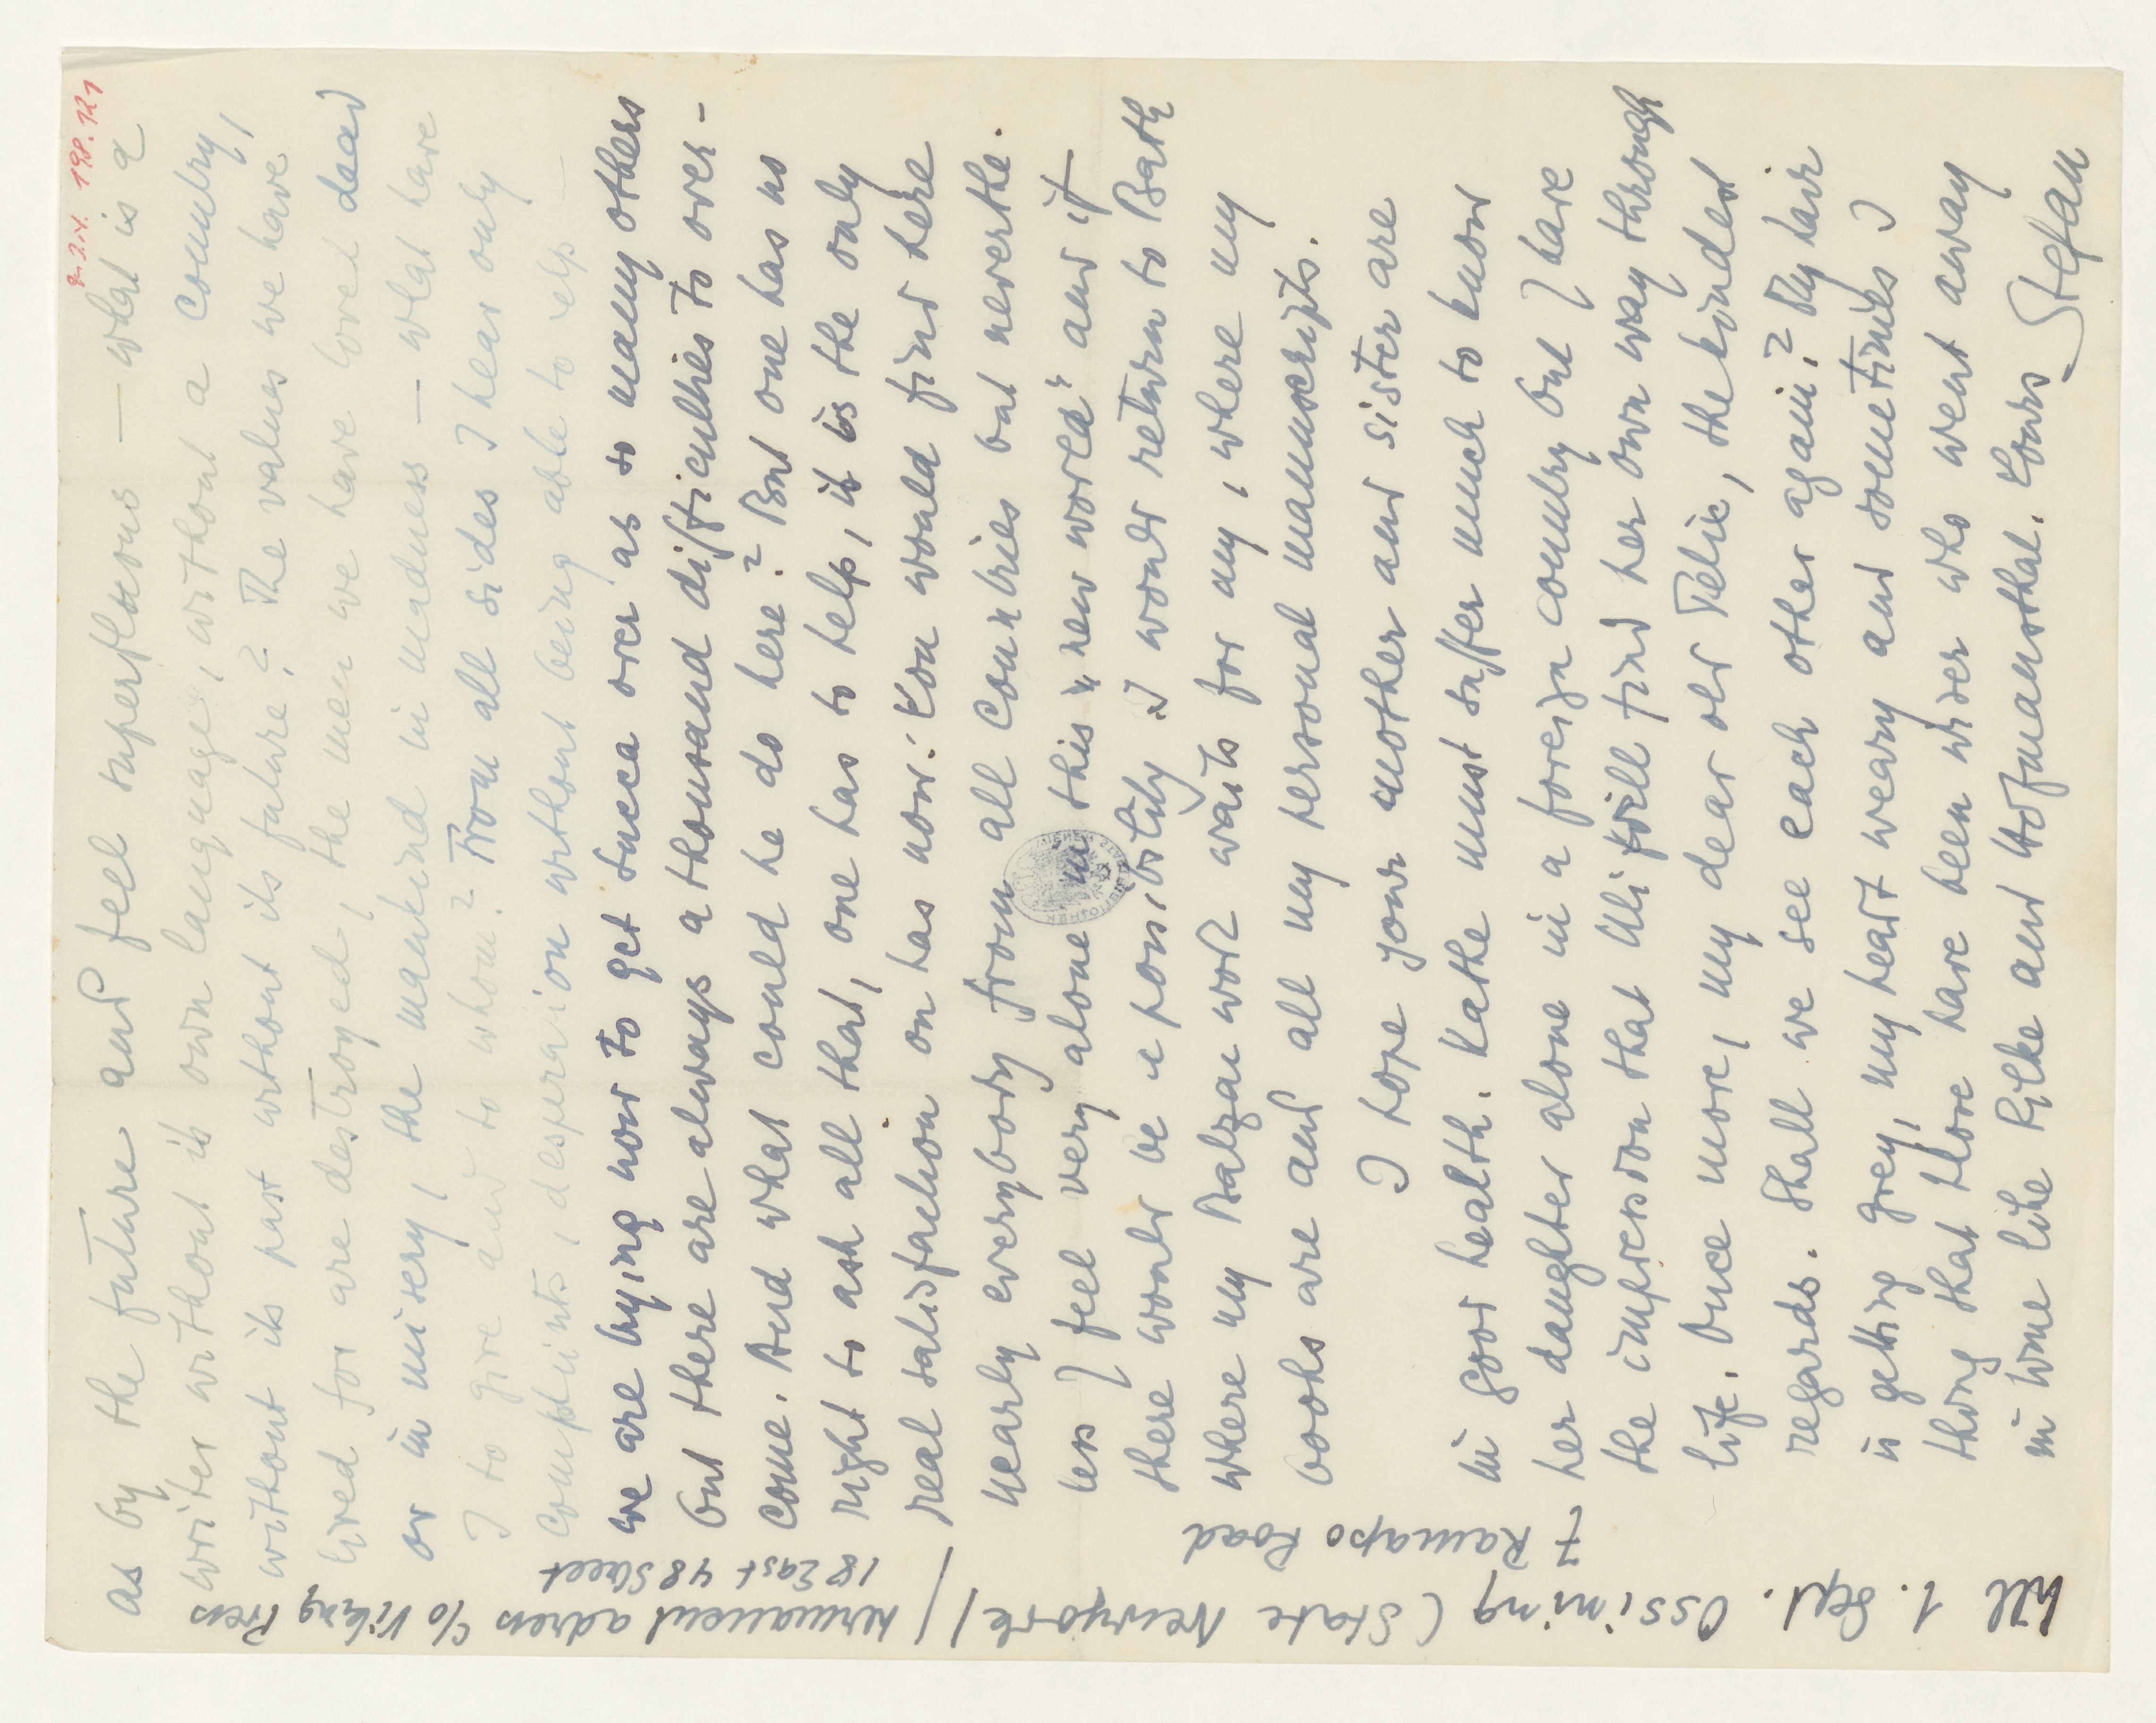 as by the future and feel superfluous — what is a
writer without is own language, without a country,
without its past without its future? The values we have
lived for are destroyed, the men we have loved dead
or in misery, the mankind in madness — what have
I to give and to whom? From all sides I hear only
complaints, desperasion without being able to help —
we are trying now to get Sucea over as so many others
but there are always a thousand difficulties to over-
come. And what could he do here? But one has no
right to ask all that, one has to help, it is the only
real satisfaction on has now. You would find here
nearly everybody from all countries but neverthe.
less I feel very alone in this „new world" and if
there would be a possibility I would return to Bath
where my Balzac work waits for my, where my
books are and all my personal manuscripts.
I hope your mother and sister are
in good health. Kathe must suffer much to know
her daughter alone in a foreign country but I have
the impression that Uli will find her own way through
life. Once more, my dear old Felix, the kindest
regards. Shall we see each other again? My hair
is getting grey, my heart weary and sometimes I
thing that those have been wiser who went away
in time like Rilke and Hofmannsthal. Yours Stefan
till 1. Sept. Ossining (State Newyork)
7 Ramapo Road
permanent adress c/o Viking Press
18 East 48 Street